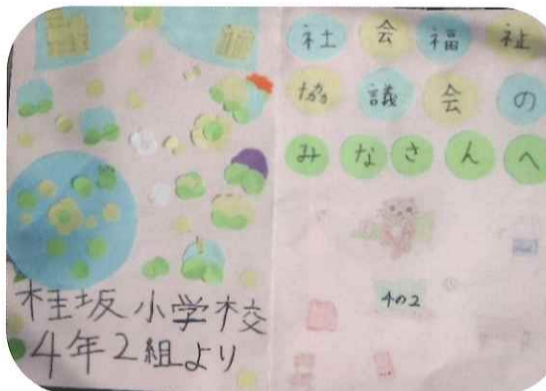 社会福祉
協議会の
みなさんへ
4の2
桂坂小学校
4年2組より